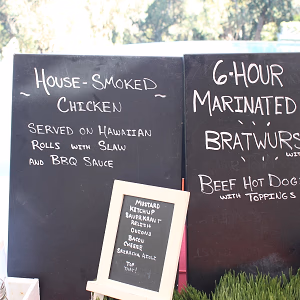 ~ HOUSE-SMOKED ~
CHICKEN
SERVED ON HAWAIIAN
ROLLS WITH SLAW
AND BBQ SAUCE
6-HOUR
MARINATED
BRATWURS
WIT
BEEF HOT DOG
WITH TOPPINGS
MUSTARD
KETCHUP
SAUERKRAUT
RELISH
ONIONS
BACON
CHEESE
SRIRACHA AIOLI
TOP
THAT!